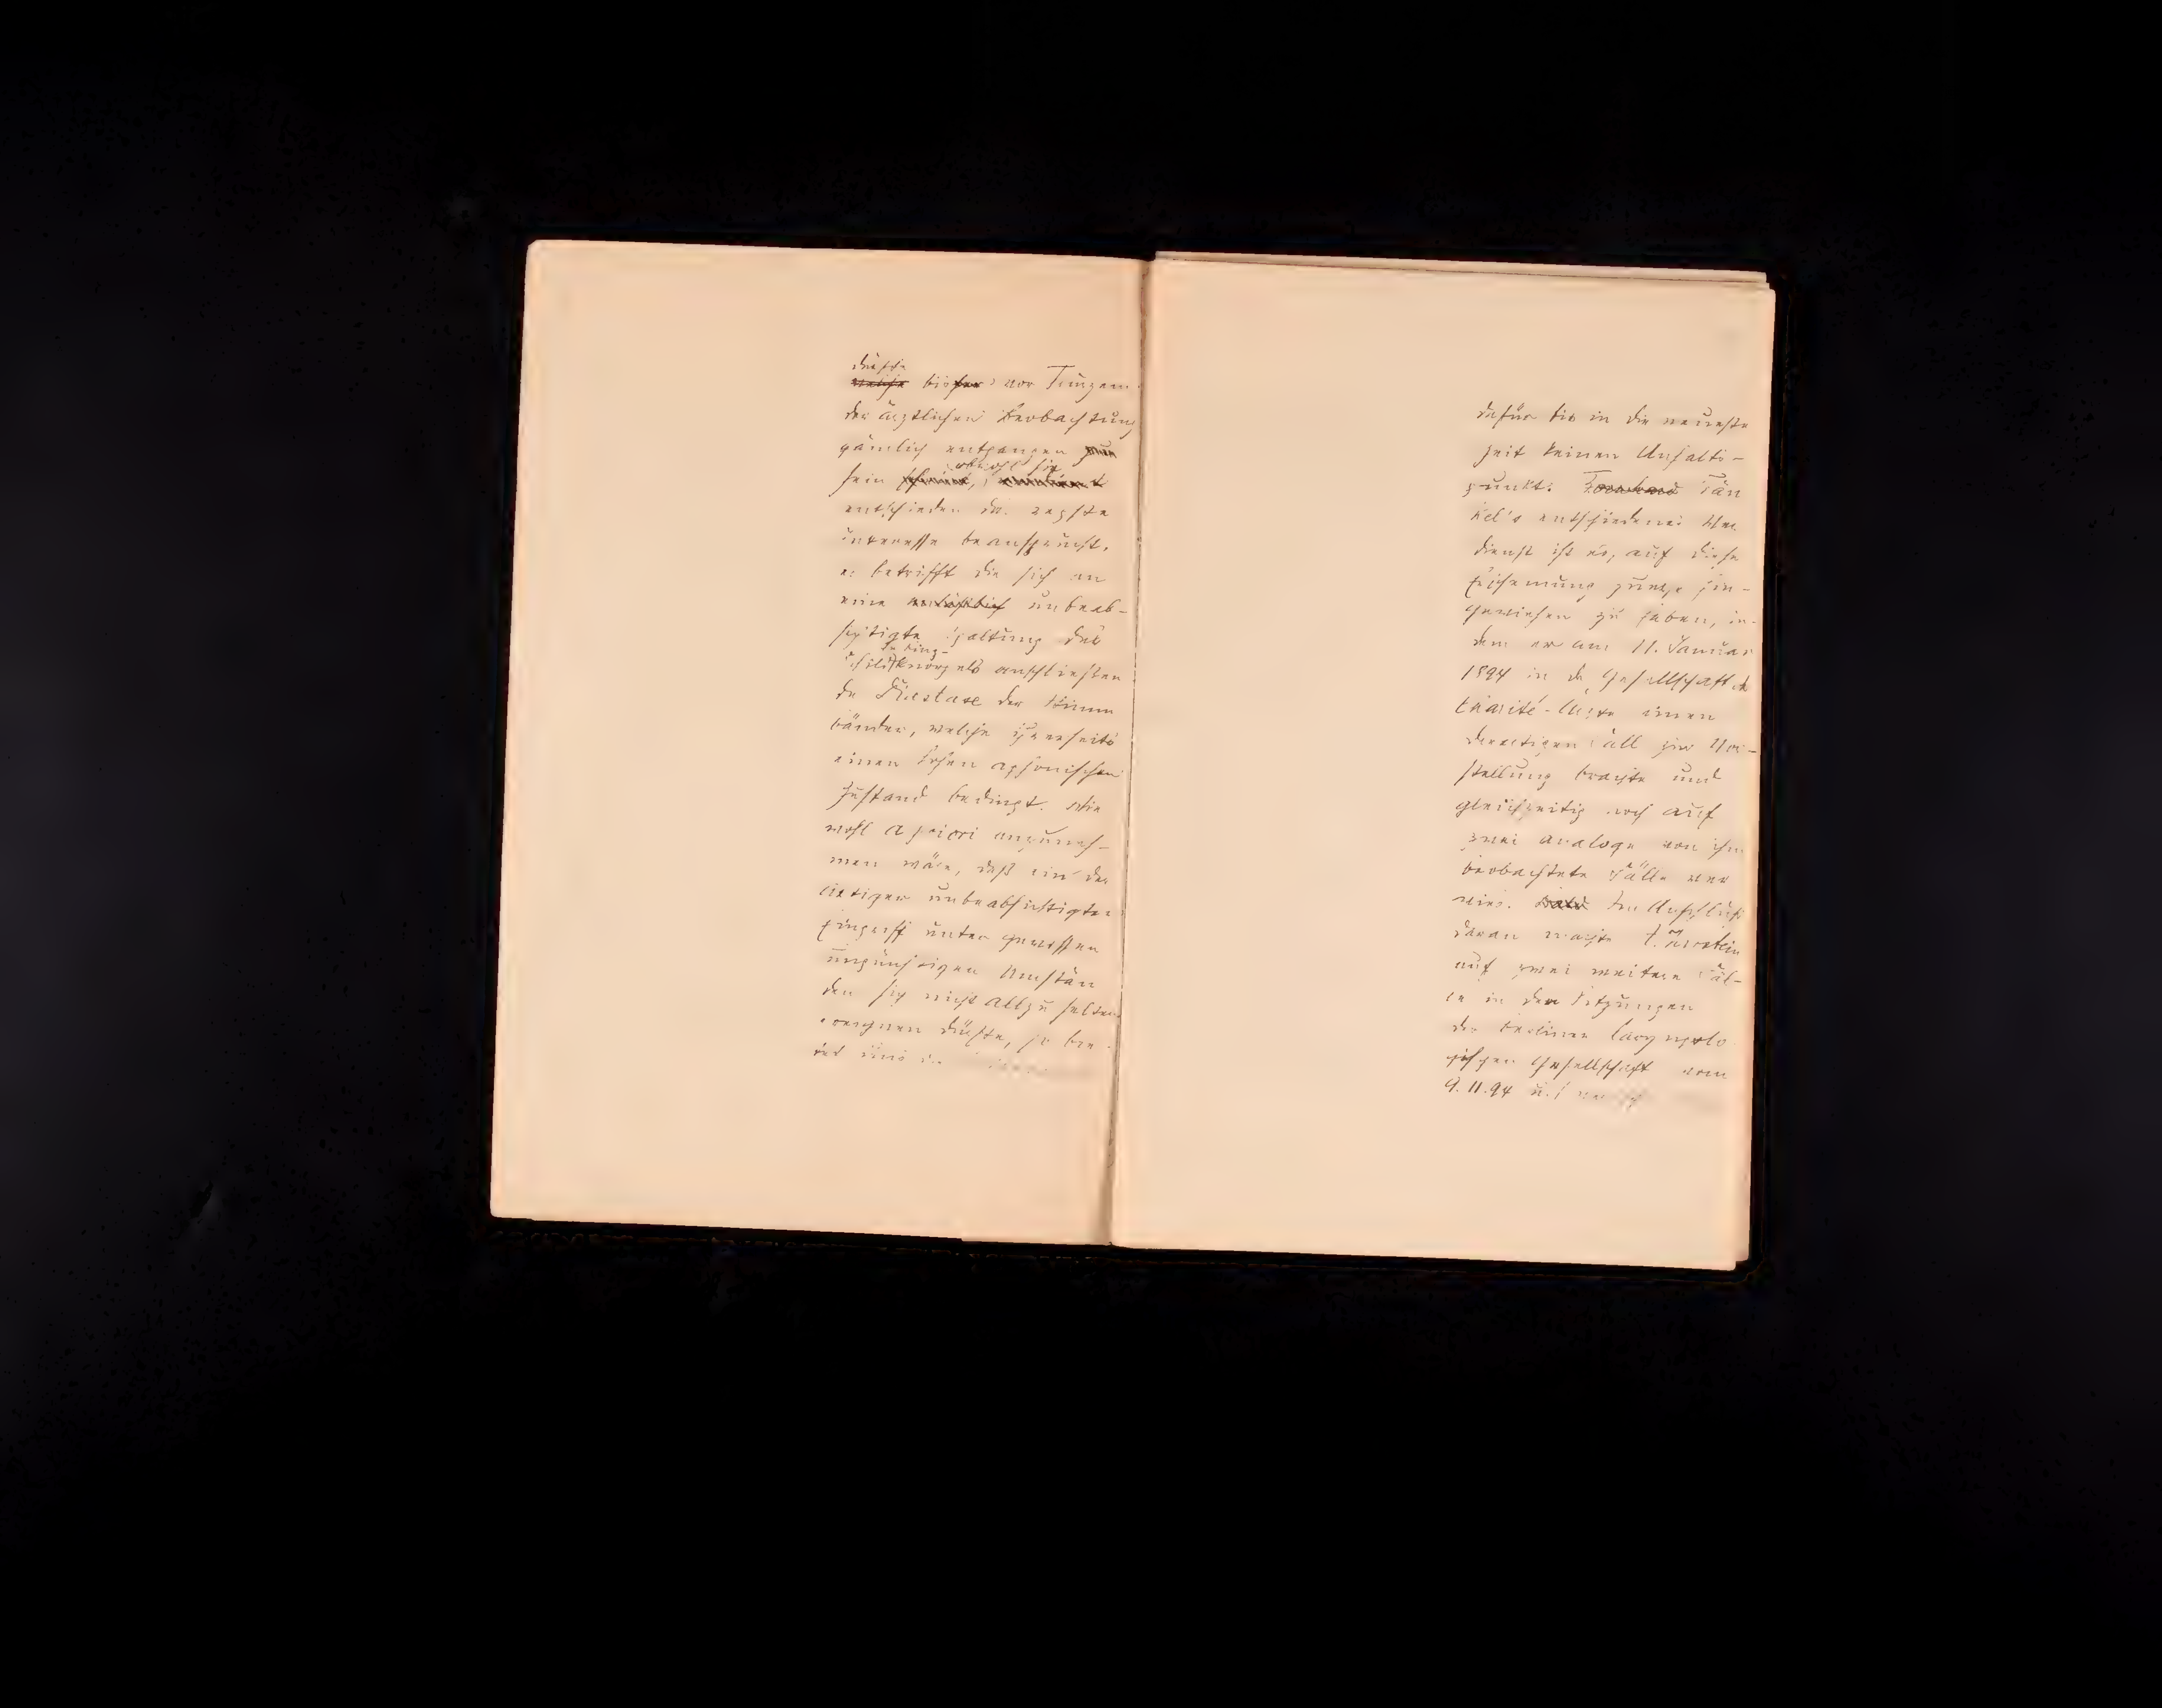 dürfte
bisher vor Kurzem
der ärztlichen Beobachtung
gänzlich entgangen
obwohl sie
sein
entschieden das regste
Interesse beansprucht.
Es betrifft die sich an
eine unbeab-
sichtigte Spaltung des
Ring-
Schildknorpels anschließen
de Diastase der Stimm
bänder, welche ihrerseits
einen hohen aphonischen
Zustand bedingt. Wie
wohl a priori anzuneh-
men wäre, daß ein der
artiger unbeabsichtigter
Eingriff unter gewissen
ungünstigen Umstän
den sich nicht allzu selten
ereignen dürfte, so bie
tet uns die
dafür bis in die neueste
Zeit keinen Anhalts-
punkt.
kel's entschiedenes Ver
dienst ist es, auf diese
Erscheinung zuerst hin-
gewiesen zu haben, in-
dem er am 11. Januar
1894 in der Gesellschaft der
Charité-Ärzte einen
derartigen Fall zur Vor-
stellung brachte und
gleichzeitig noch auf
zwei analoge von ihm
beobachtete Fälle ver
wies. Im Anschluß
daran machte
auf zwei weitere Fäl-
le in den Sitzungen
der Berliner laryngolo
gischen Gesellschaft vom
9.11.94